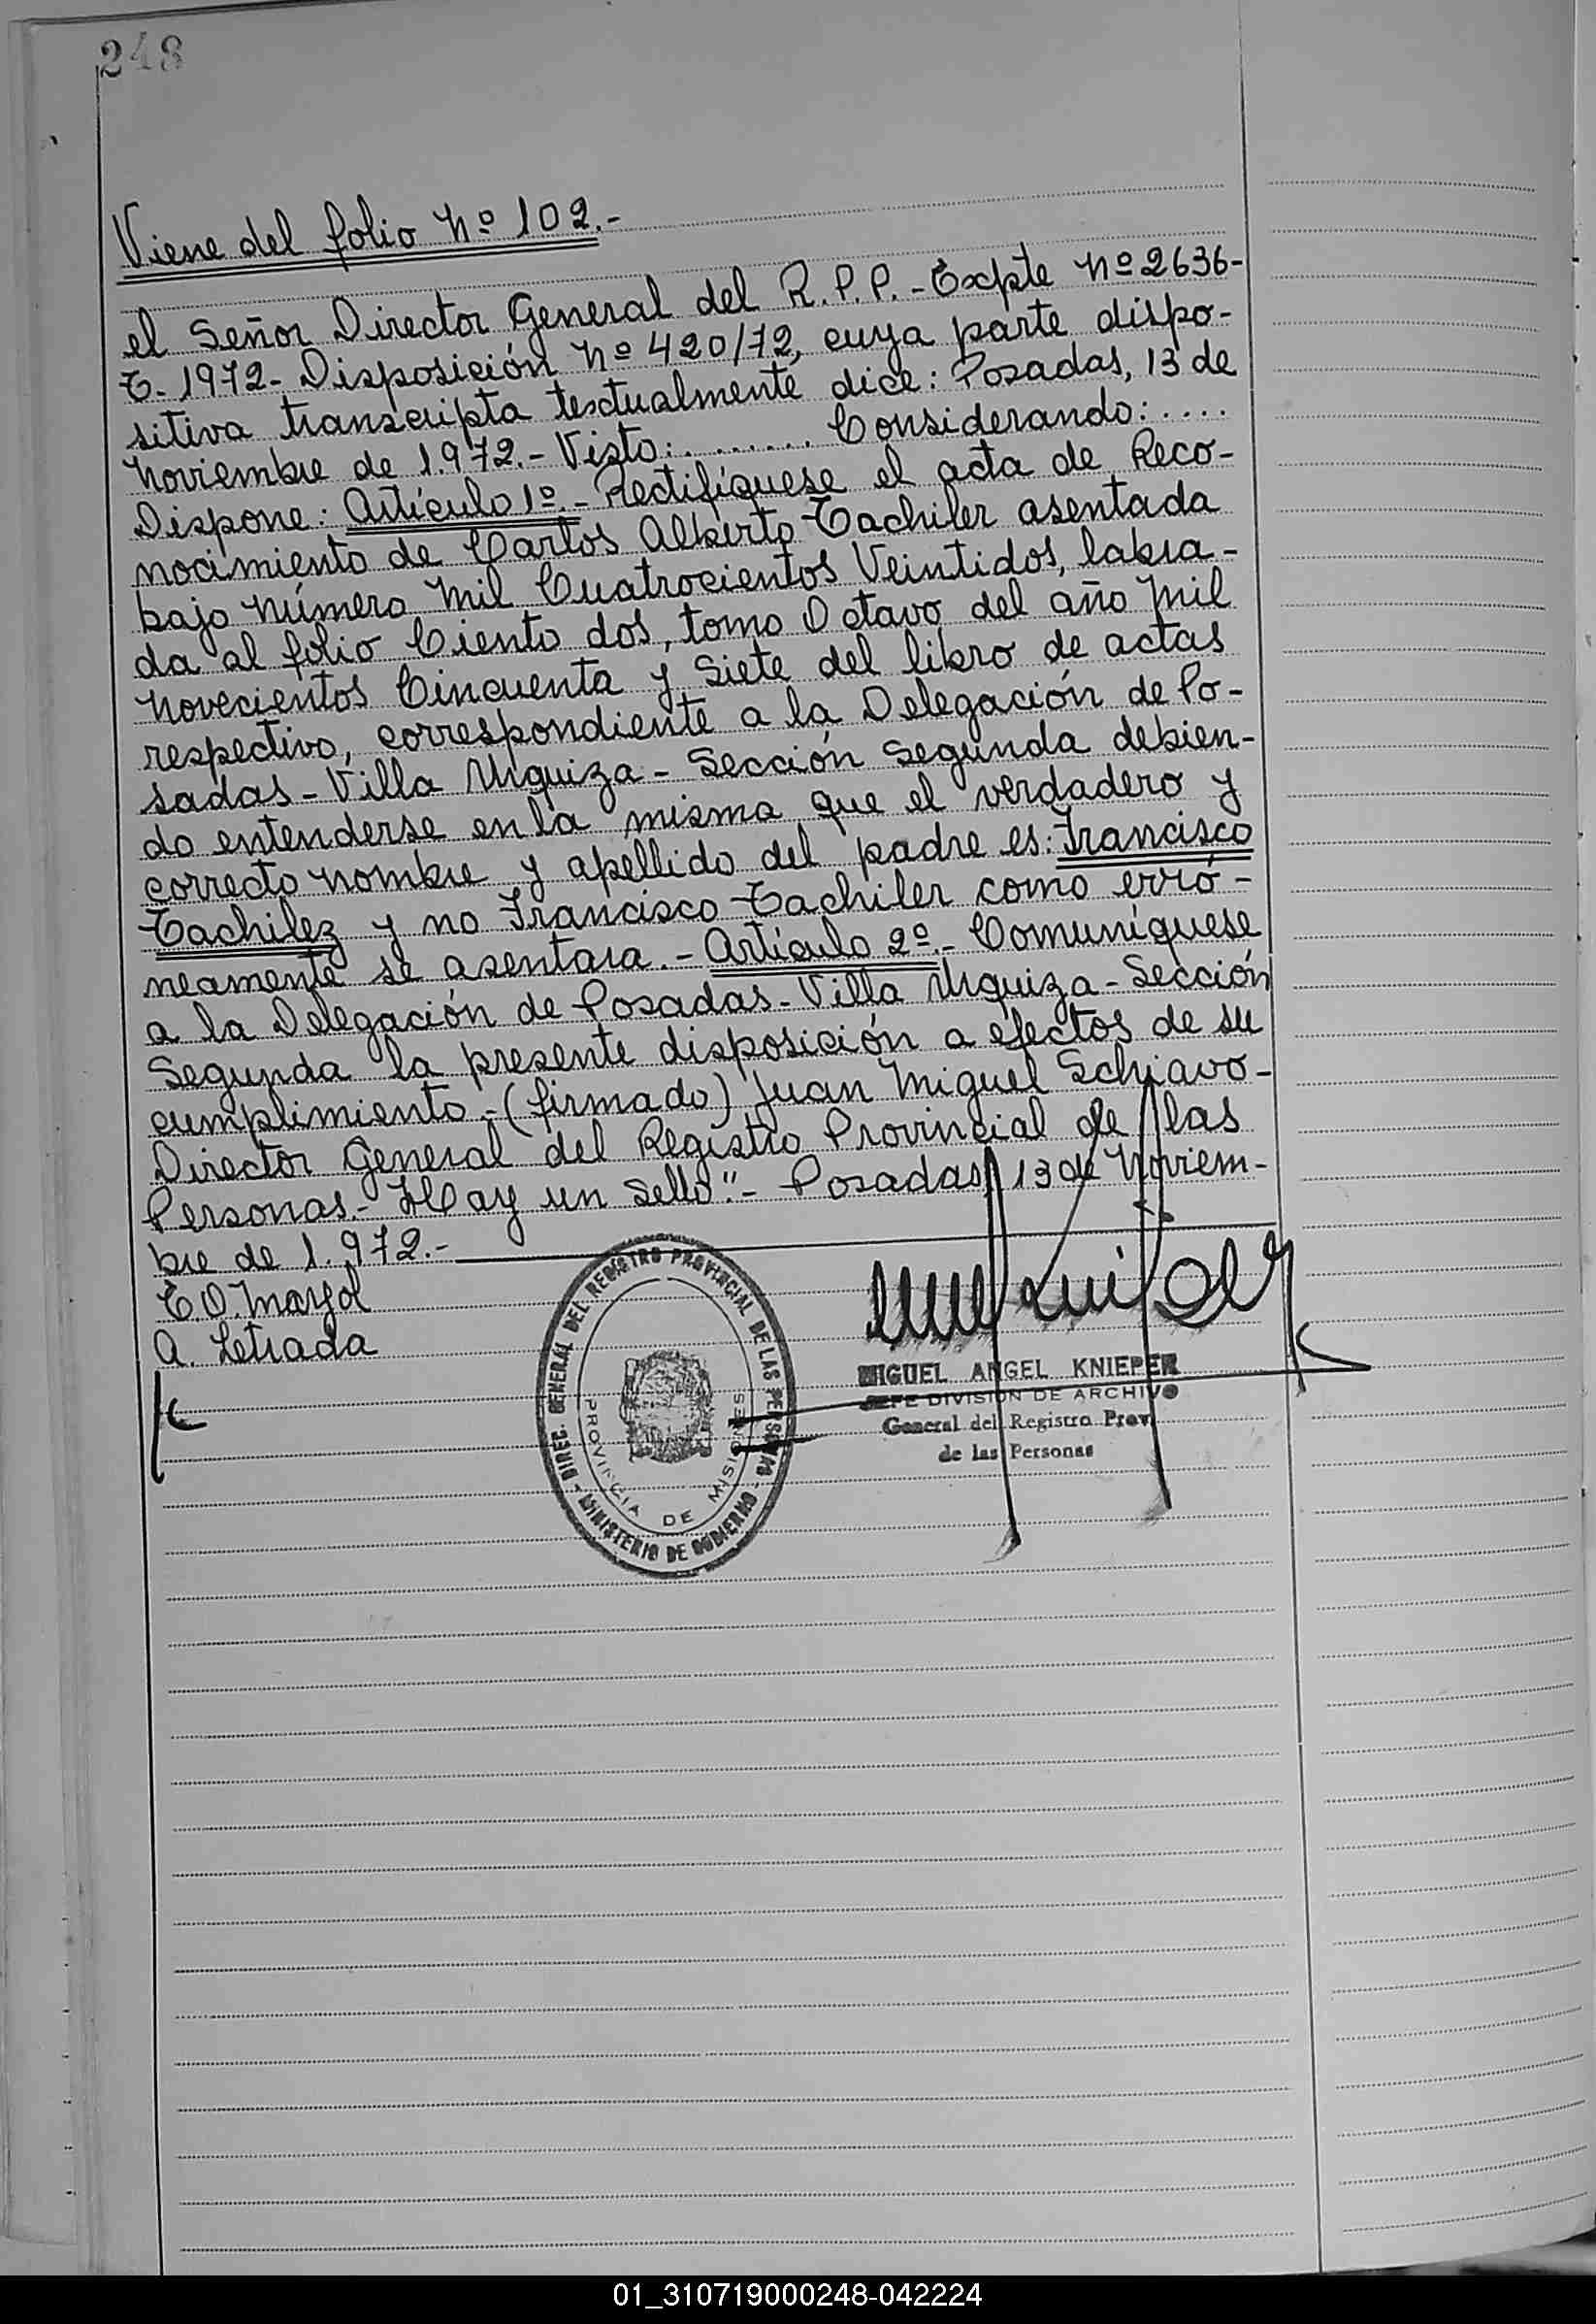 248
Viene del folio Nº 102.-
el Señor Director General del R.P.P.-Expte Nº 2636-
T-1972- Disposición Nº 420/72, cuya parte dispo-
sitiva transcripta textualmente dice: Posadas, 13 de
Noviembre de 1.972.- Visto:........ Considerando:....
Dispone: Artículo 1º.- Rectifíquese el acta de Reco-
nocimiento de Carlos Alberto Tachiler asentada
bajo número Mil Cuatrocientos Veintidos, labra-
da al folio Ciento dos, tomo Octavo del año Mil
Novecientos Cincuenta y Siete del libro de actas
respectivo, correspondiente a la Delegación de Po-
sadas-Villa Urquiza-Sección Segunda debien-
do entenderse en la misma que el verdadero y
correcto nombre y apellido del padre es: Francisco
Tachilez y no Francisco Tachiler como erró-
neamente se asentara.- Artículo 2º.- Comuníquese
a la Delegación de Posadas-Villa Urquiza-Sección
Segunda la presente disposición a efectos de su
cumplimiento.-(firmado) Juan Miguel Schiavo-
Director General del Registro Provincial de las
Personas.- Hay un sello".- Posadas, 13 de Noviem-
bre de 1.972.-
T.O. Mayol
A. Letrada
DIREC. GENERAL DEL REGISTRO PROVINCIAL DE LAS PERSONAS - MINISTERIO DE GOBIERNO -
PROVINCIA DE MISIONES
MIGUEL ANGEL KNIEPER
JEFE DIVISION DE ARCHIVO
General del Registro Prov.
de las Personas
01_310719000248-042224